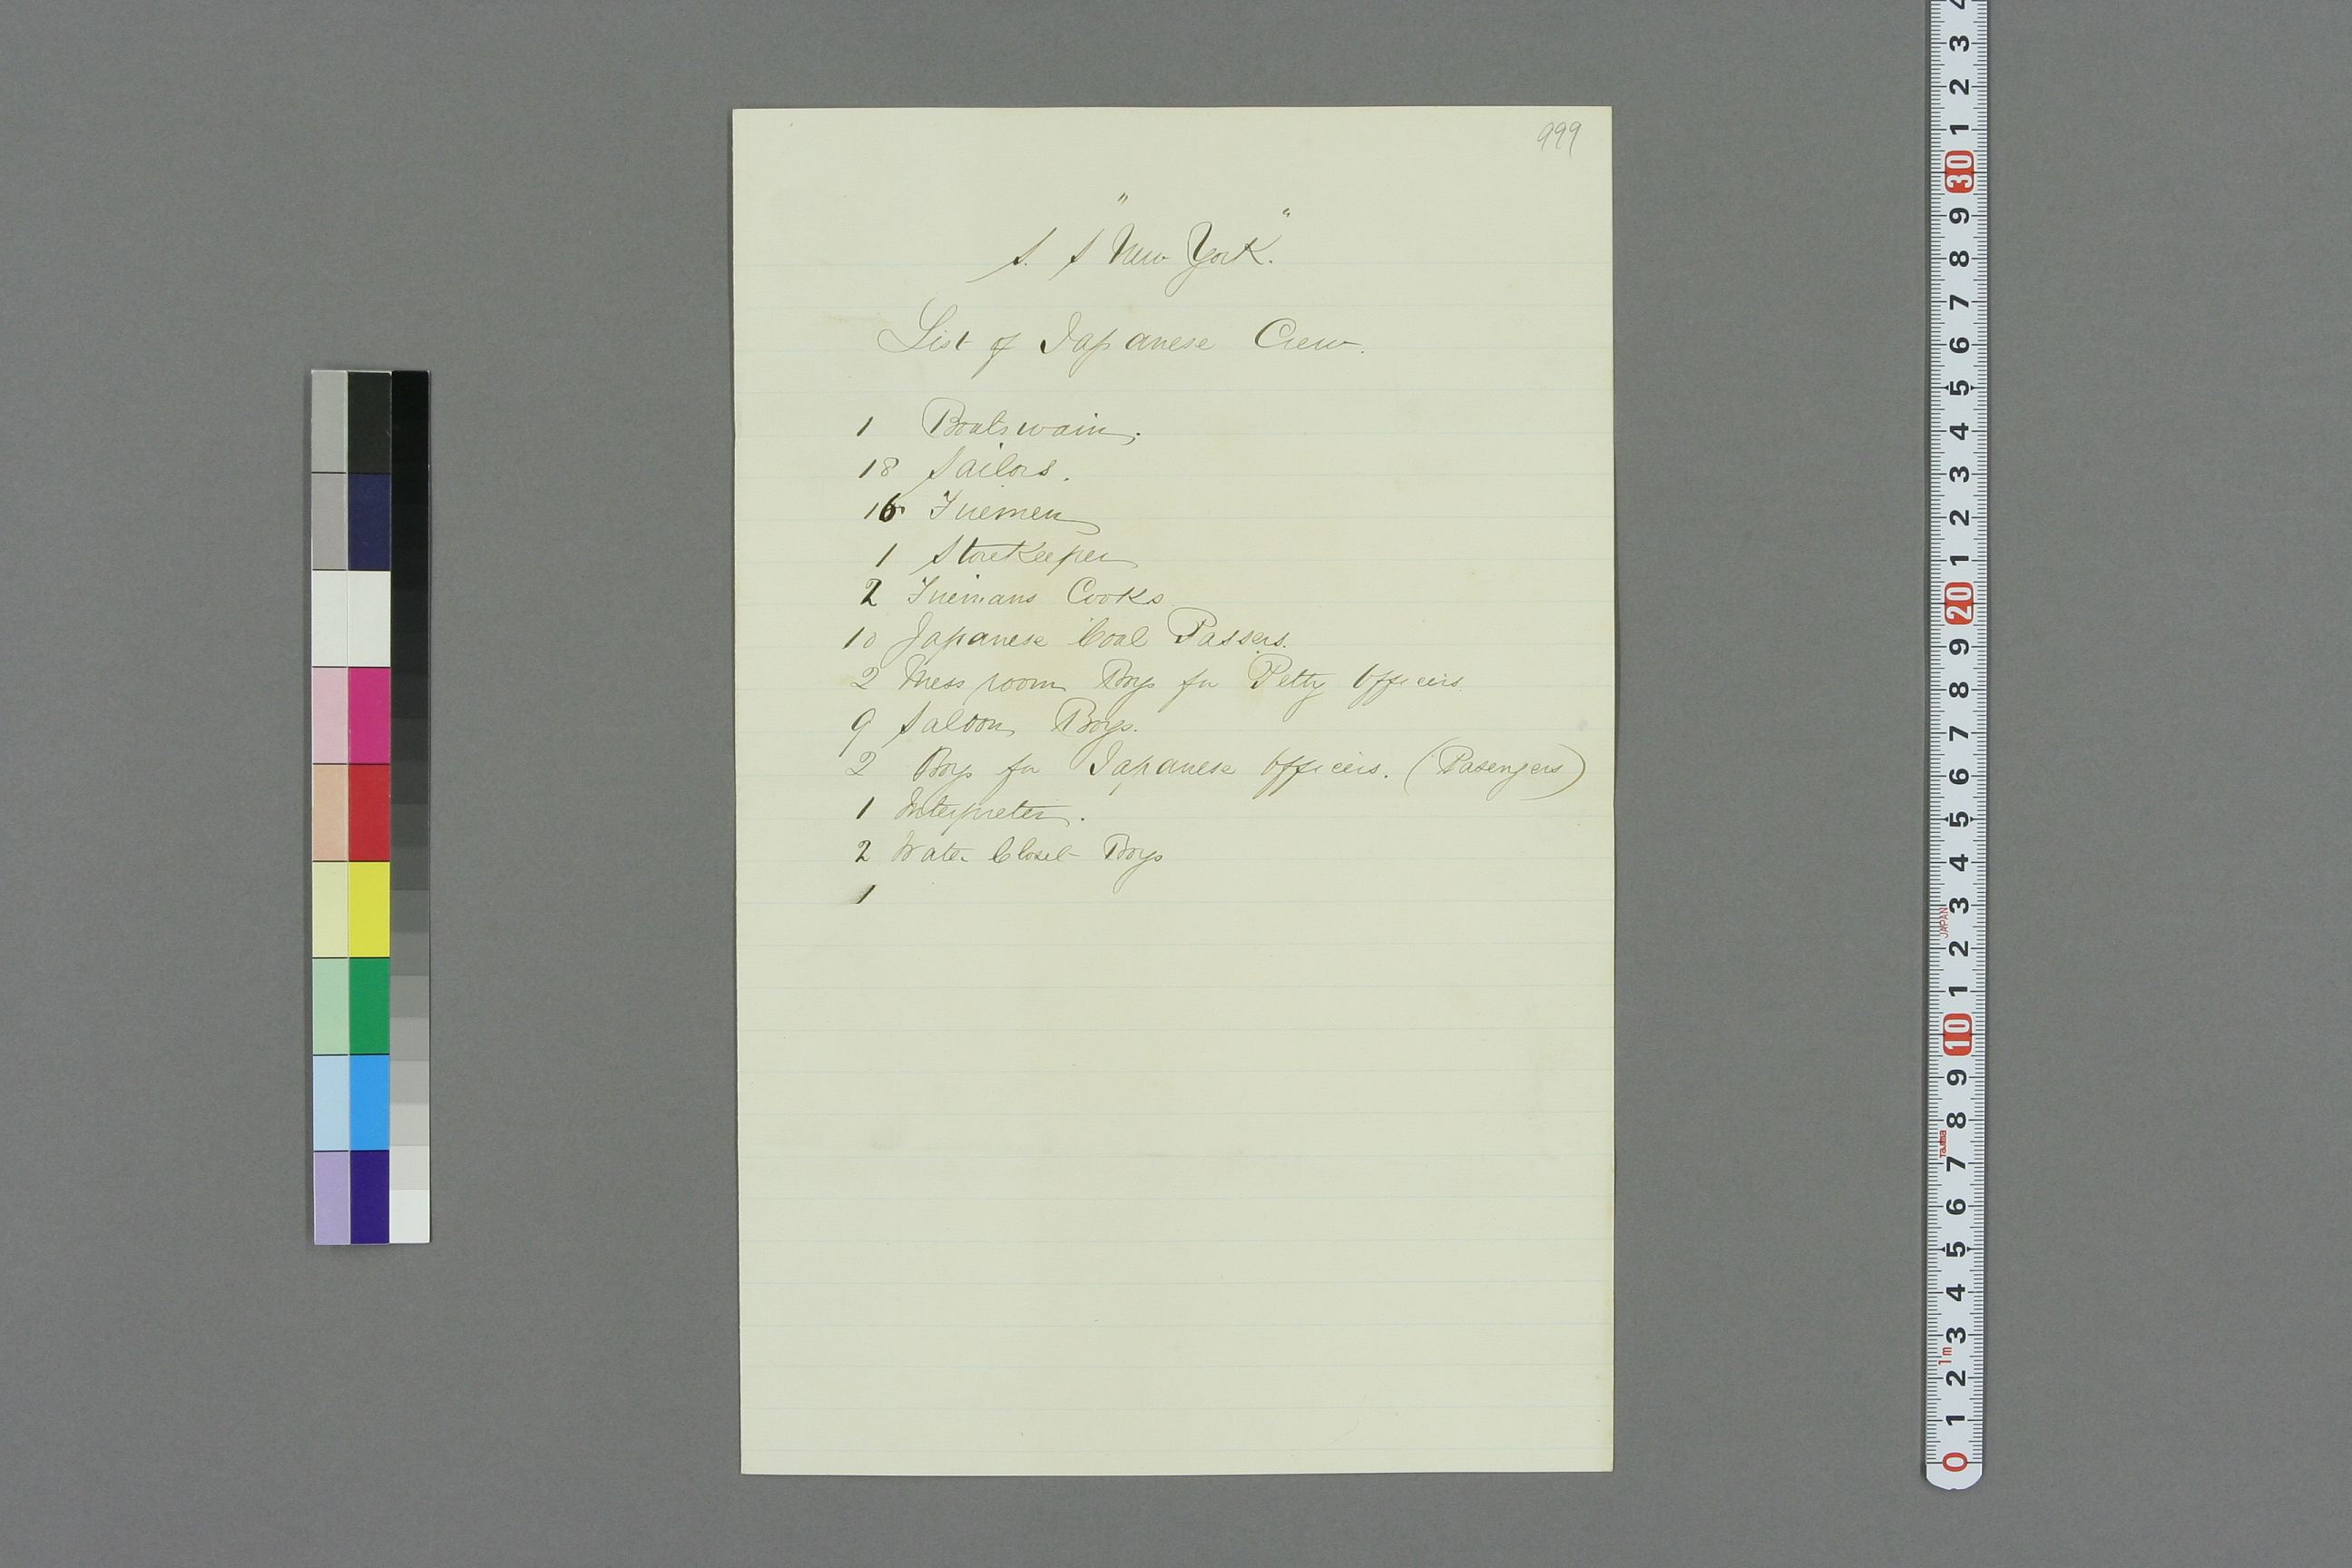 999
S. S "New York."
List of Japanese Crew.
1 Boatswain.
18 Sailors.
16 Firemen
1 StoreKeeper
2 Firemans Cooks
10 Japanese Coal Passers.
2 Mess room Boys for Petty Officers
9 Saloon Boys.
2 Boys for Japanese Officers. (Pasengers)
1 Interpreter.
2 Water Closet Boys
1
4 3 2 1 30 9 8 7 6 5 4 3 2 1 20 9 8 7 6 5 4 3 2 1 10 9 8 7 6 5 4 3 2 1 0
JAPAN
Tajima
1m